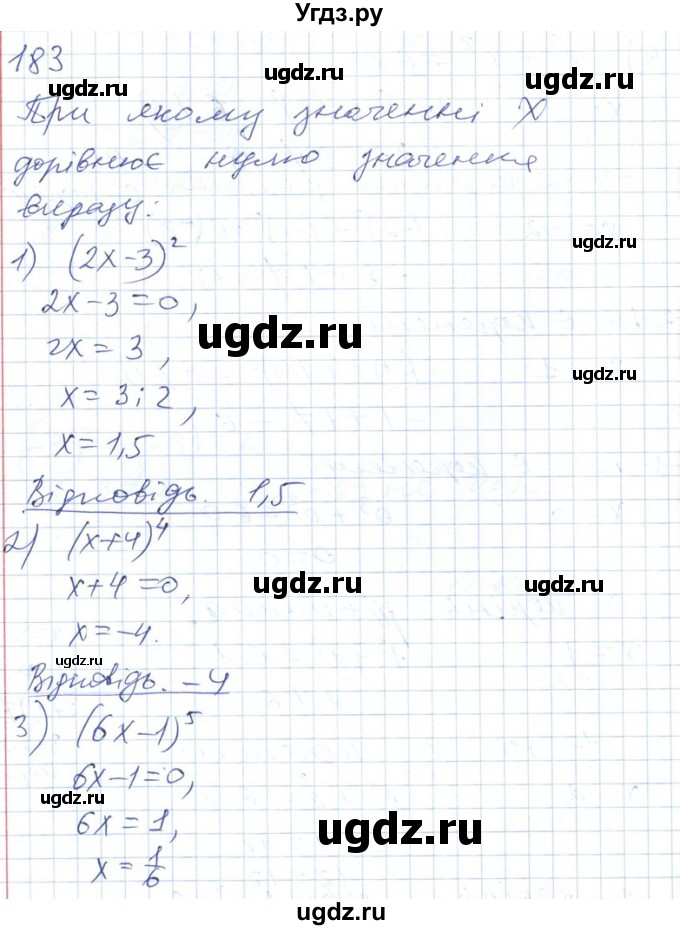 Угдз.ру
183
При якому значенні X
дорівнює нулю значення
виразу:
1) (2x-3)²
2x-3=0,
2x = 3,
x = 3:2,
x = 1,5
Відповідь. 1,5
2) (x+4)⁴
x+4=0,
x=-4.
Відповідь. -4
3) (6x-1)⁵
6x-1=0,
6x = 1,
x = 1/6
ugdz.ru
ugdz.ru
ugdz.ru
ugdz.ru
ugdz.ru
ugdz.ru
ugdz.ru
ugdz.ru
ugdz.ru
ugdz.ru
ugdz.ru
ugdz.ru
ugdz.ru